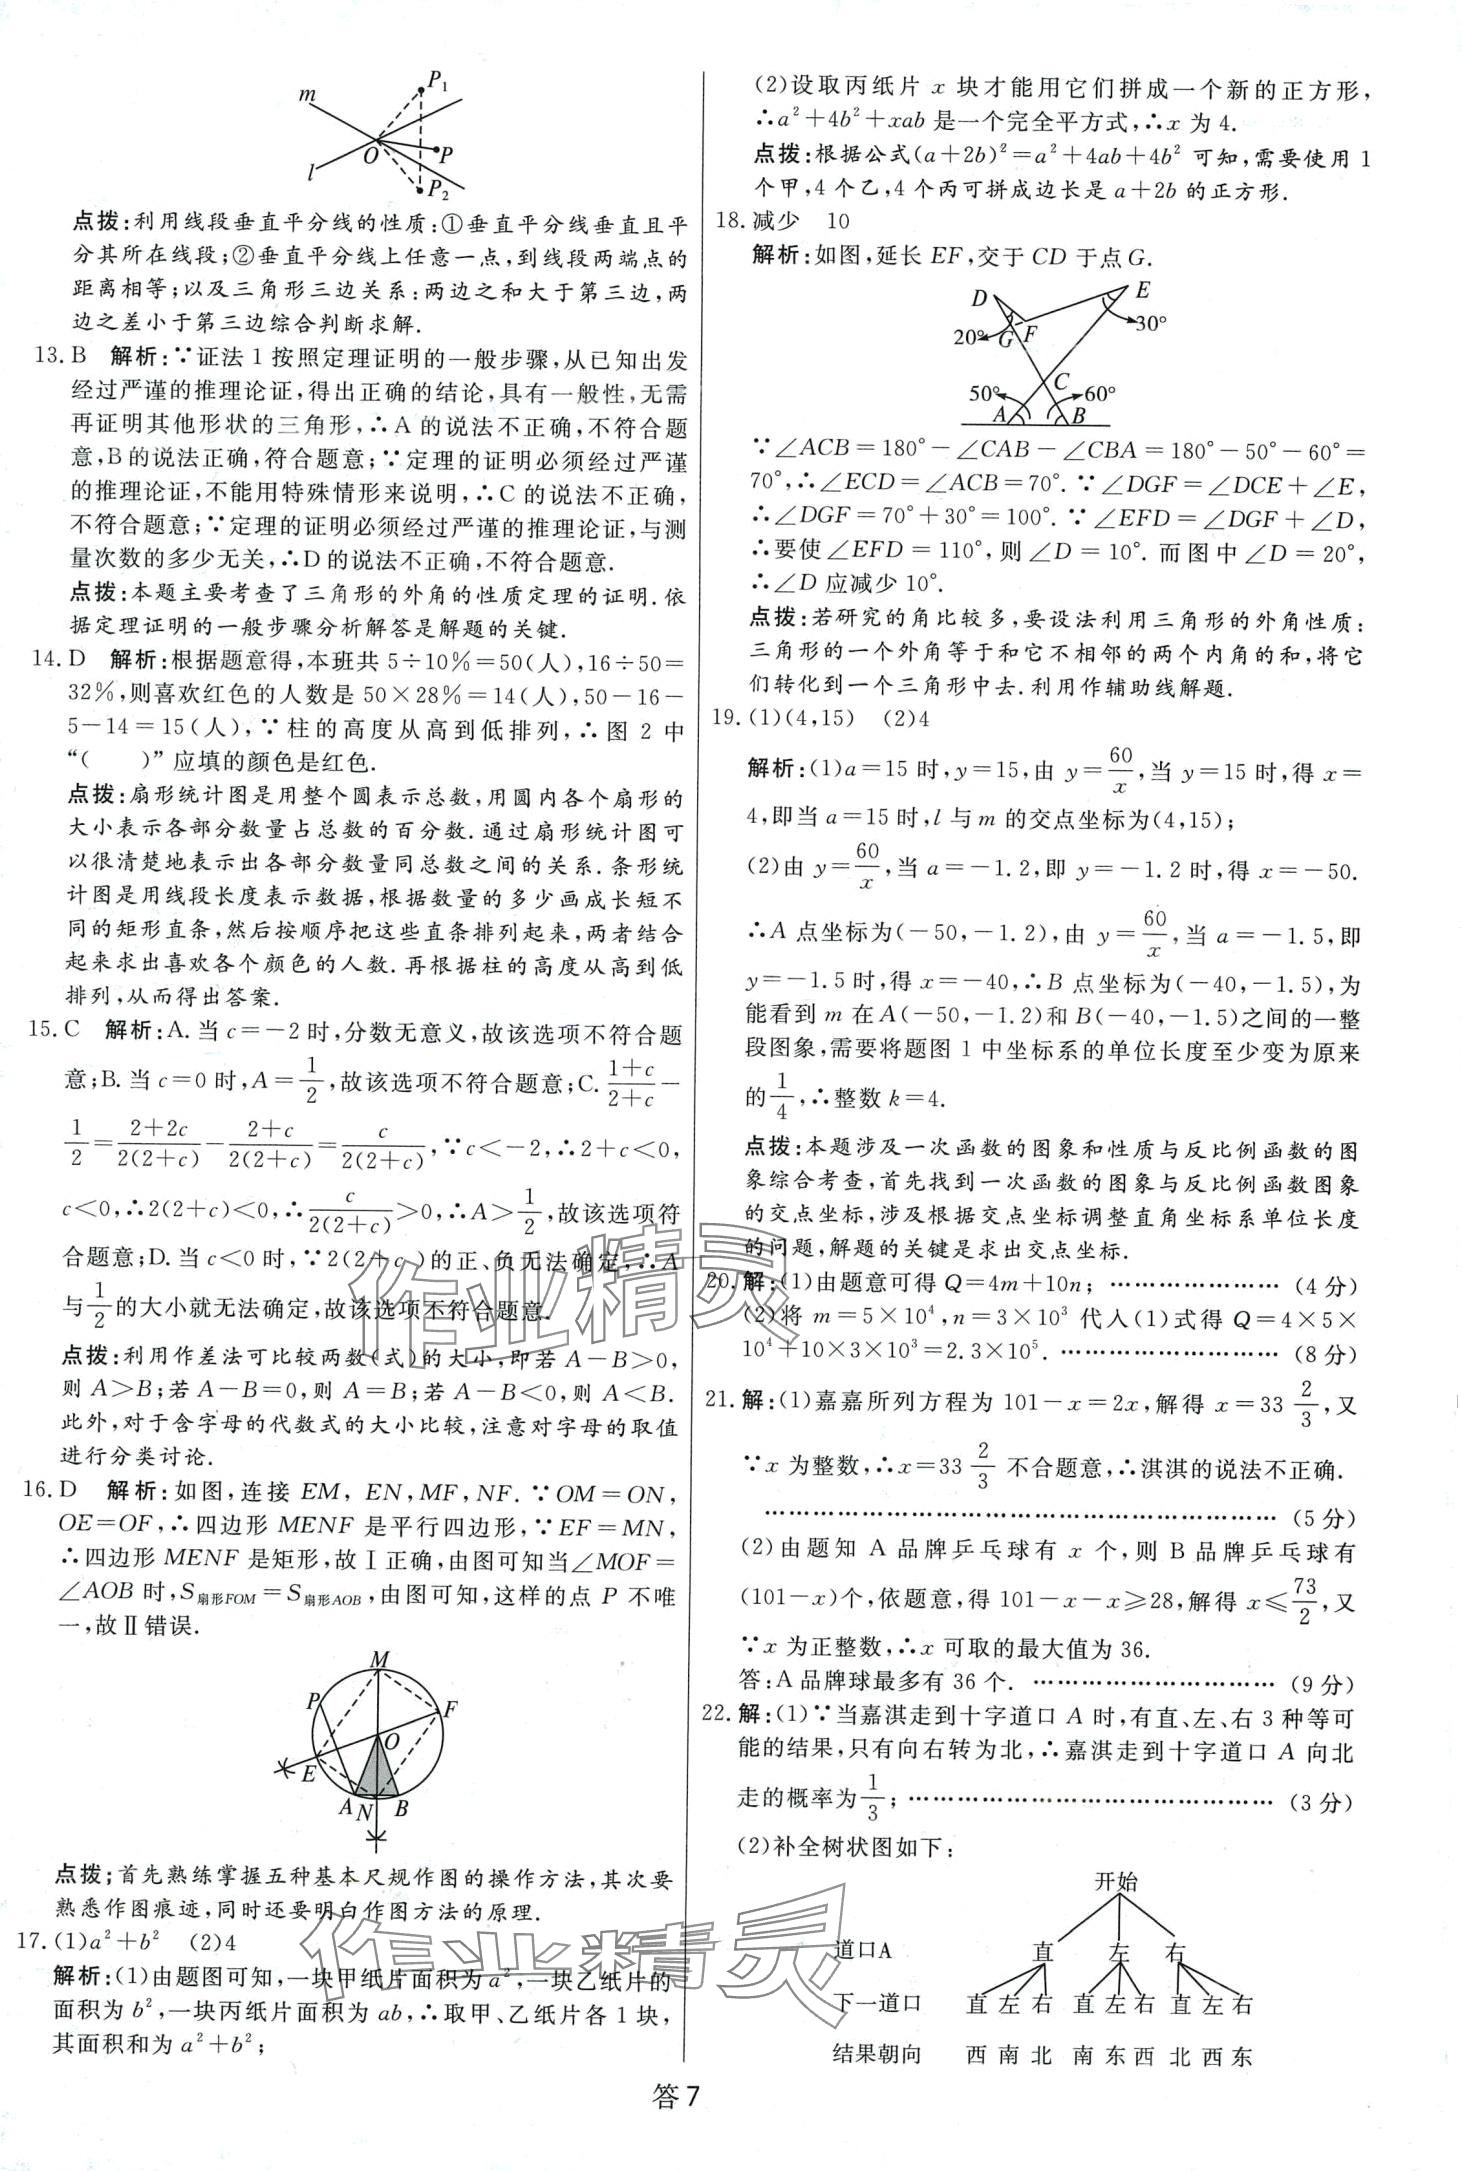 m
P₁
O
P
l
P₂
点拨:利用线段垂直平分线的性质:①垂直平分线垂直且平
分其所在线段;②垂直平分线上任意一点,到线段两端点的
距离相等;以及三角形三边关系:两边之和大于第三边,两
边之差小于第三边综合判断求解.
13. B 解析:∵证法 1 按照定理证明的一般步骤,从已知出发
经过严谨的推理论证,得出正确的结论,具有一般性,无需
再证明其他形状的三角形,∴A 的说法不正确,不符合题
意,B的说法正确,符合题意;∵定理的证明必须经过严谨
的推理论证,不能用特殊情形来说明,∴C 的说法不正确,
不符合题意;∵定理的证明必须经过严谨的推理论证,与测
量次数的多少无关,∴D 的说法不正确,不符合题意.
点拨:本题主要考查了三角形的外角的性质定理的证明.依
据定理证明的一般步骤分析解答是解题的关键.
14. D 解析:根据题意得,本班共 5÷10%=50(人),16÷50=
32%,则喜欢红色的人数是 50×28%=14(人),50-16-
5-14=15(人),∵柱的高度从高到低排列,∴图 2 中
“( )”应填的颜色是红色.
点拨:扇形统计图是用整个圆表示总数,用圆内各个扇形的
大小表示各部分数量占总数的百分数.通过扇形统计图可
以很清楚地表示出各部分数量同总数之间的关系.条形统
计图是用线段长度表示数据,根据数量的多少画成长短不
同的矩形直条,然后按顺序把这些直条排列起来,两者结合
起来求出喜欢各个颜色的人数.再根据柱的高度从高到低
排列,从而得出答案.
15. C 解析:A. 当 c=-2 时,分数无意义,故该选项不符合题
意;B. 当 c=0 时,A=1/2,故该选项不符合题意;C. (1+c)/(2+c)-
1/2=(2+2c)/(2(2+c))-(2+c)/(2(2+c))=c/(2(2+c)),∵c<-2,∴2+c<0,
c<0,∴2(2+c)<0,∴c/(2(2+c))>0,∴A>1/2,故该选项符
合题意;D. 当 c<0 时,∵2(2+c)的正、负无法确定,∴A
与1/2的大小就无法确定,故该选项不符合题意.
点拨:利用作差法可比较两数(式)的大小,即若 A-B>0,
则 A>B;若 A-B=0,则 A=B;若 A-B<0,则 A<B.
此外,对于含字母的代数式的大小比较,注意对字母的取值
进行分类讨论.
16. D 解析:如图,连接 EM, EN,MF,NF. ∵OM=ON,
OE=OF,∴四边形 MENF 是平行四边形,∵EF=MN,
∴四边形 MENF 是矩形,故Ⅰ正确,由图可知当∠MOF=
∠AOB 时,S扇形FOM=S扇形AOB,由图可知,这样的点 P 不唯
一,故Ⅱ错误.
M
P
F
O
E
A
N
B
点拨;首先熟练掌握五种基本尺规作图的操作方法,其次要
熟悉作图痕迹,同时还要明白作图方法的原理.
17. (1)a²+b² (2)4
解析:(1)由题图可知,一块甲纸片面积为 a²,一块乙纸片的
面积为 b²,一块丙纸片面积为 ab,∴取甲、乙纸片各 1 块,
其面积和为 a²+b²;
(2)设取丙纸片 x 块才能用它们拼成一个新的正方形,
∴a²+4b²+xab 是一个完全平方式,∴x 为 4.
点拨:根据公式(a+2b)²=a²+4ab+4b² 可知,需要使用 1
个甲,4 个乙,4 个丙可拼成边长是 a+2b 的正方形.
18. 减少 10
解析:如图,延长 EF,交于 CD 于点G.
D
E
20°
G
F
30°
C
50°
60°
A
B
∵∠ACB=180°-∠CAB-∠CBA=180°-50°-60°=
70°,∴∠ECD=∠ACB=70°. ∵∠DGF=∠DCE+∠E,
∴∠DGF=70°+30°=100°. ∵∠EFD=∠DGF+∠D,
∴要使∠EFD=110°,则∠D=10°. 而图中∠D=20°,
∴∠D 应减少 10°.
点拨:若研究的角比较多,要设法利用三角形的外角性质:
三角形的一个外角等于和它不相邻的两个内角的和,将它
们转化到一个三角形中去.利用作辅助线解题.
19. (1)(4,15) (2)4
解析:(1)a=15 时,y=15,由 y=60/x,当 y=15 时,得 x=
4,即当 a=15 时,l 与 m 的交点坐标为(4,15);
(2)由 y=60/x,当 a=-1.2,即 y=-1.2 时,得 x=-50.
∴A 点坐标为(-50,-1.2),由 y=60/x,当 a=-1.5,即
y=-1.5 时,得 x=-40,∴B 点坐标为(-40,-1.5),为
能看到 m 在A(-50,-1.2)和 B(-40,-1.5)之间的一整
段图象,需要将题图 1 中坐标系的单位长度至少变为原来
的1/4,∴整数 k=4.
点拨:本题涉及一次函数的图象和性质与反比例函数的图
象综合考查,首先找到一次函数的图象与反比例函数图象
的交点坐标,涉及根据交点坐标调整直角坐标系单位长度
的问题,解题的关键是求出交点坐标.
20. 解:(1)由题意可得 Q=4m+10n; …………………… (4 分)
(2)将 m=5×10⁴,n=3×10³ 代人(1)式得 Q=4×5×
10⁴+10×3×10³=2.3×10⁵. …………………… (8 分)
21. 解:(1)嘉嘉所列方程为 101-x=2x,解得 x=33 2/3,又
∵x 为整数,∴x=33 2/3 不合题意,∴淇淇的说法不正确.
…………………………………………………… (5 分)
(2)由题知 A 品牌乒乓球有 x 个,则 B 品牌乒乓球有
(101-x)个,依题意,得 101-x-x≥28,解得 x≤73/2,又
∵x 为正整数,∴x 可取的最大值为 36.
答:A 品牌球最多有 36 个. …………………… (9 分)
22. 解:(1)∵当嘉淇走到十字道口 A 时,有直、左、右 3 种等可
能的结果,只有向右转为北,∴嘉淇走到十字道口 A 向北
走的概率为1/3; ………………………………… (3 分)
(2)补全树状图如下:
开始
道口A 直 左 右
下一道口 直 左 右 直 左 右 直 左 右
结果朝向 西 南 北 南 东 西 北 西 东
作业精灵
作业精灵
答 7